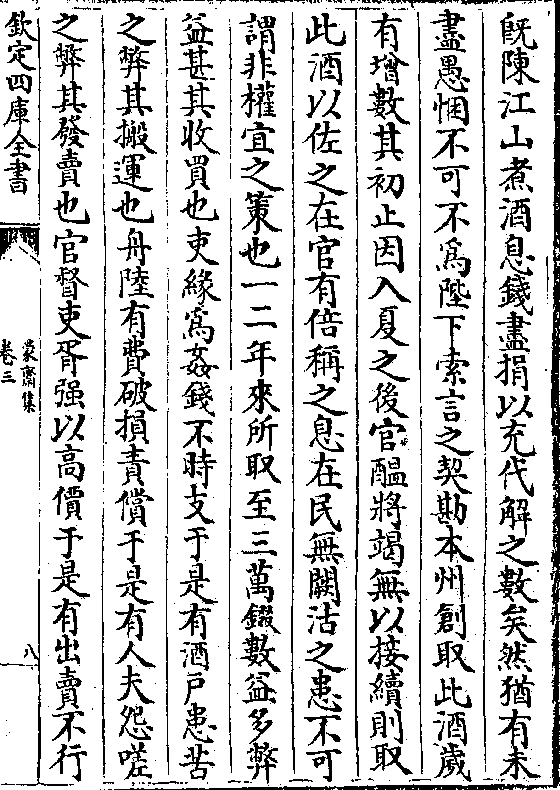 既陳江山煮酒息錢盡捐以充代解之數矣然猶有未
盡愚悃不可不為陛下索言之契勘本州創取此酒歲
有增數其初止因入夏之後官醖將竭無以接續則取
此酒以佐之在官有倍稱之息在民無闕沽之患不可
謂非權宜之策也一二年來所取至三萬錣數益多弊
益甚其收買也吏緣為姦錢不時支于是有酒戶患苦
之弊其搬運也舟陸有費破損責償于是有人夫怨嗟
之弊其發賣也官督吏胥强以高價于是有出賣不行
欽定四庫全書
蒙齋集
卷三
八